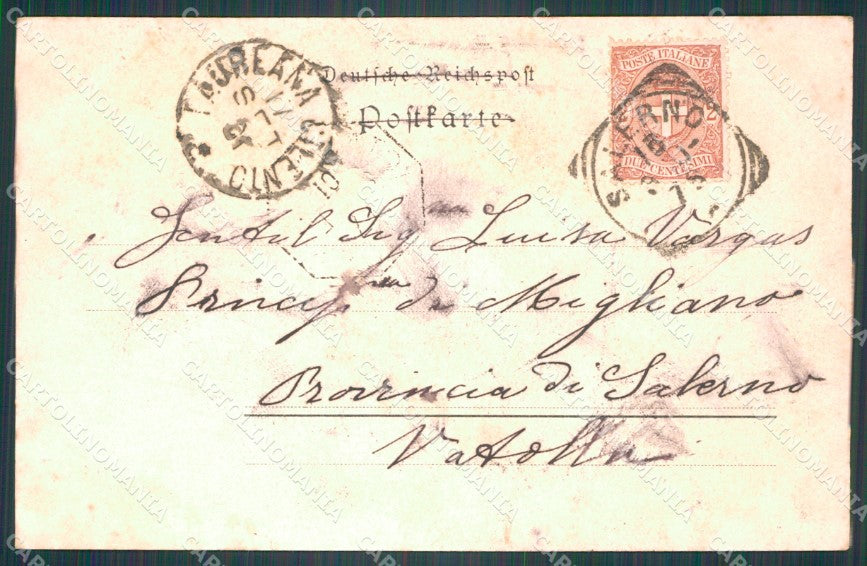 Deutsche Reichspost
Postkarte
POSTE ITALIANE
2
DUE CENTESIMI
SALERNO
LAUREANA CILENTO
Gentil Sig.na Luisa Vargas
Princip.na di Migliano
Provincia di Salerno
Vatolla
CARTOLINOMANIA